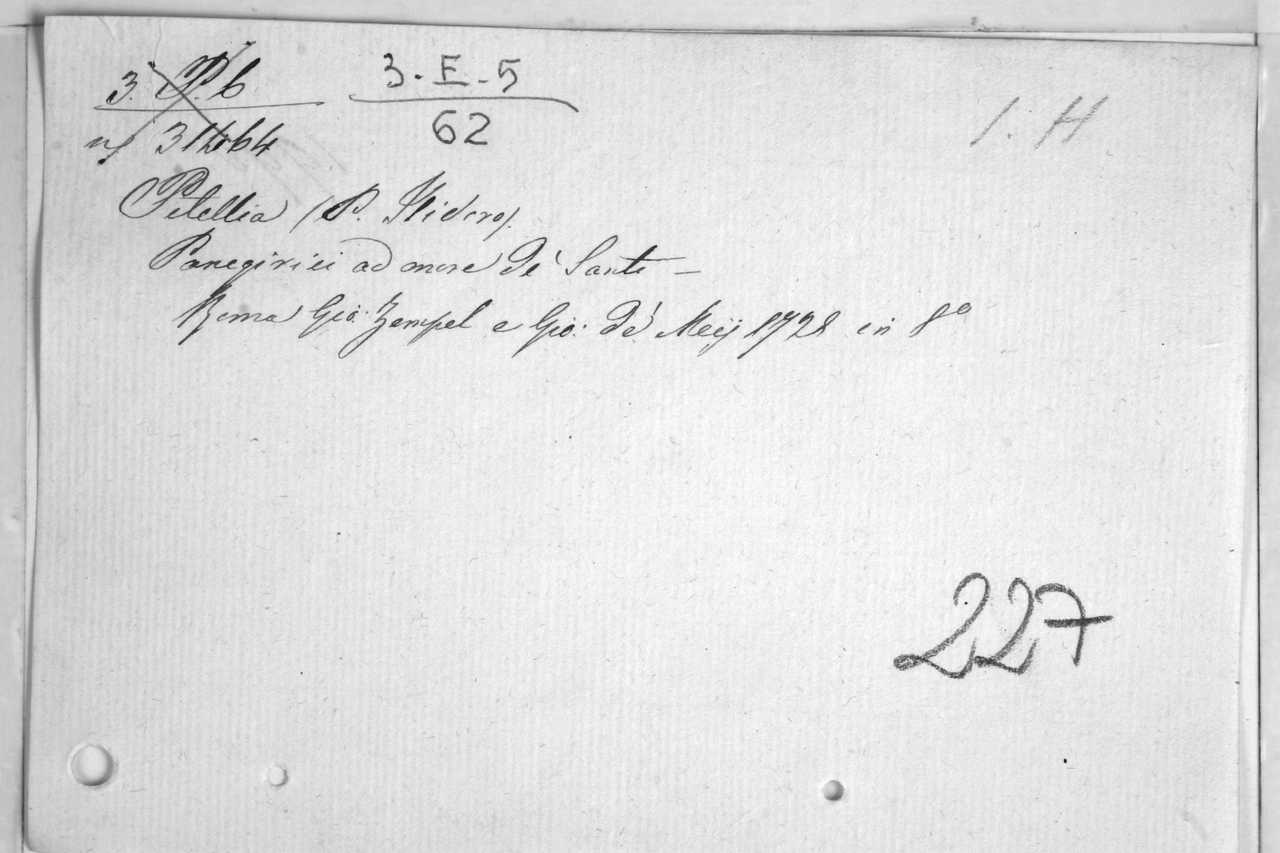 3. P. 6 3-E-5
n° 31464 62
1. H
Petellia (P. Isidoro)
Panegirici ad onore dè Santi —
Roma Gio: Zempel e Gio: dè Meij 1728 in 8°
227